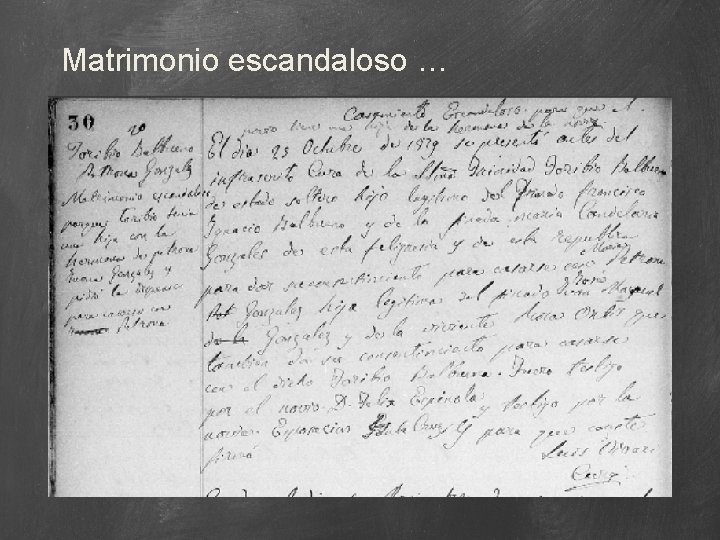 Matrimonio escandaloso …
30
20
Toribio Balbuena
Petrona Gonzalez
Matrimonio escandaloso
porque toribio tenia
una hija con la
hermana de petrona
Juana Gonzalez y
pidió la dispensa
para casarse con
Petrona
Casamiento Escandaloso. para que el
novio tiene una hija de la hermana de la novia
El dia 23 Octubre de 1879 se presentó antes del
infrascrito Cura de la Trinidad Toribio Balbuena
de estado soltero hijo legitimo del finado Francisco
Ignacio Balbuena y de la finada Maria Candelaria
Gonzales de esta feligresia y de esta republica
para dar su consentimiento para casarse con Petrona
Gonzalez hija legitima del finado Manuel
de la Gonzalez y de la viviente Rosa Ortiz que
tambien dá su consentimiento para casarse
con el dicho Toribio Balbuena. Fuero testigo
por el novio D. Felix Espinola y testigo por la
novia y para que conste
firmo
Luis
Cura